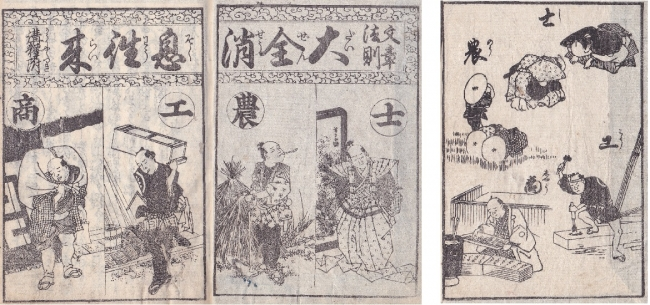 文章
法則
大全消
士
農
息徃来
工
商
士
農
工
商